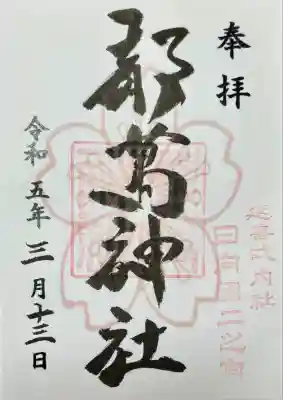 奉拝
延喜式内社
日向国二之宮
都萬神社
令和五年三月十三日